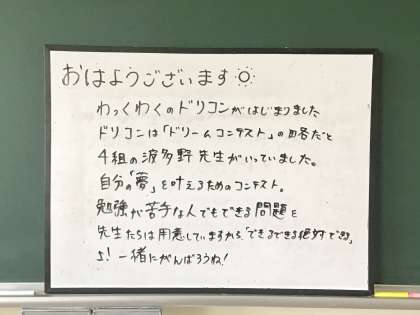 おはようございます
わっくわくのドリコンがはじまりました
ドリコンは「ドリームコンテスト」の略だと
4組の波多野先生がいっていました。
自分の「夢」を叶えるためのコンテスト。
勉強が苦手な人でもできる問題を
先生たちは用意していますから「できるできる絶対できる」
よ！一緒にがんばろうね！